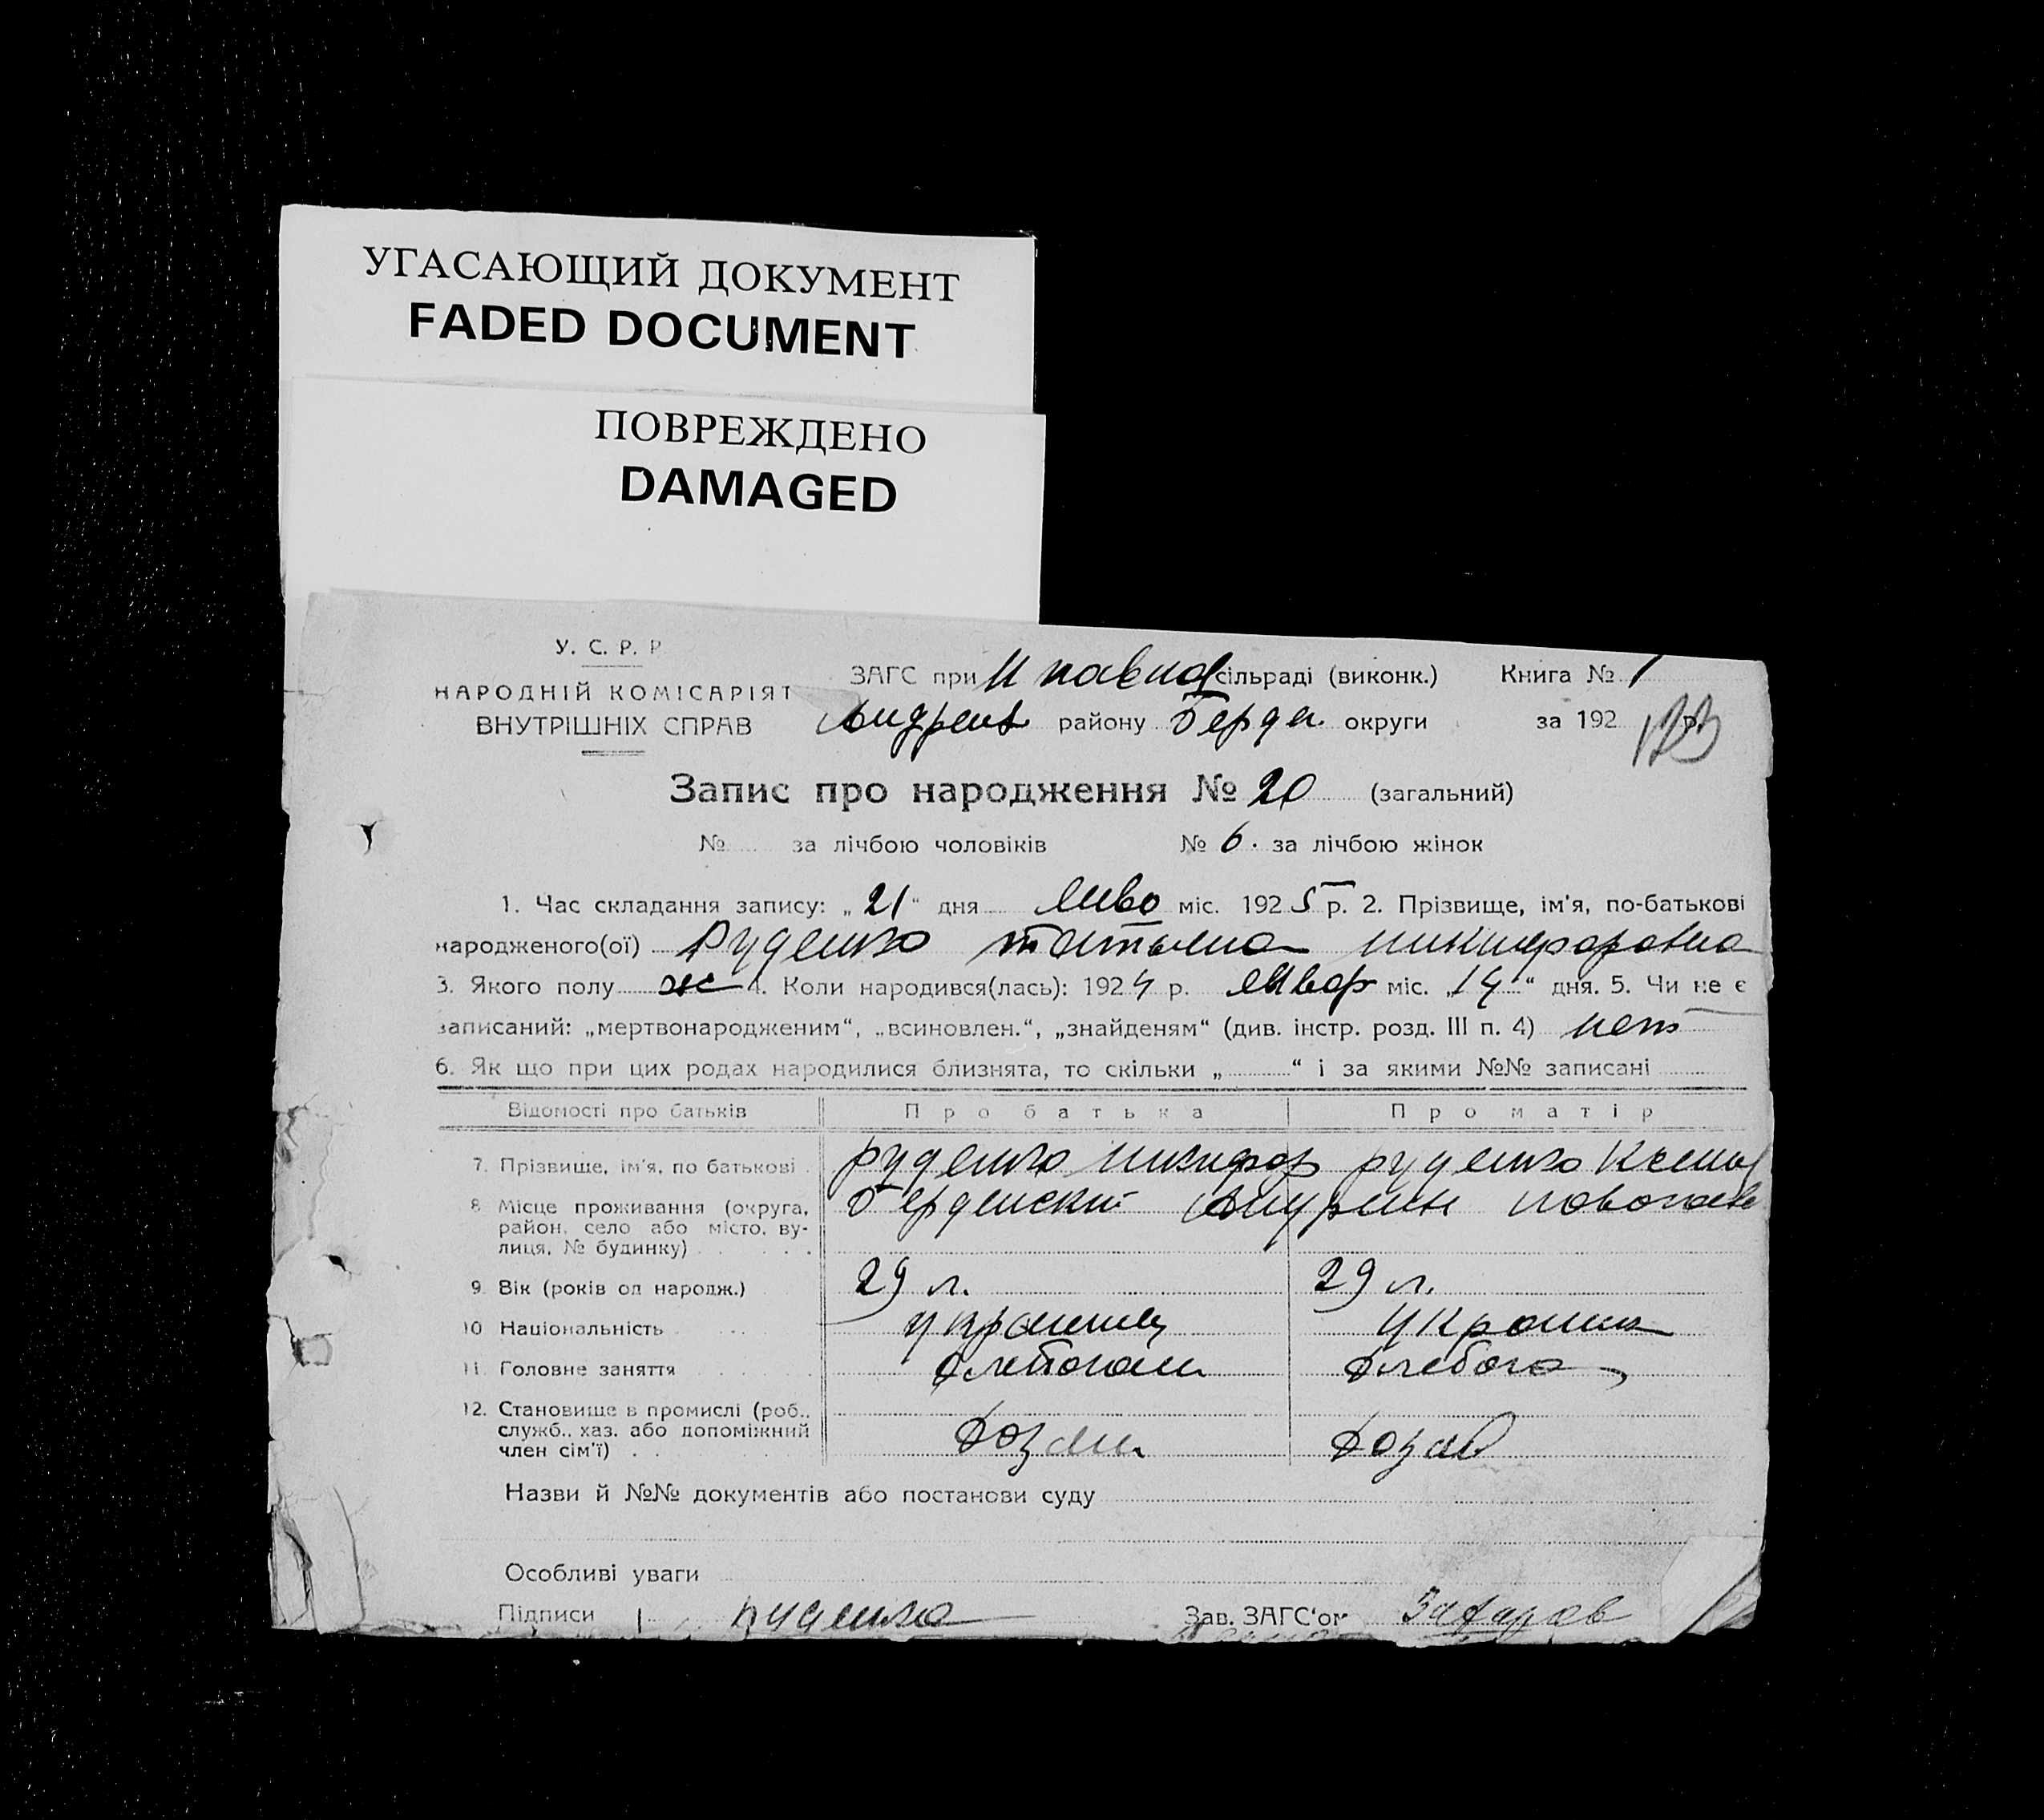 УГАСАЮЩИЙ ДОКУМЕНТ
FADED DOCUMENT
ПОВРЕЖДЕНО
DAMAGED
У. С. Р. Р
НАРОДНІЙ КОМІСАРІЯТ
ВНУТРІШНІХ СПРАВ
ЗАГС при Н павлов сільраді (виконк.) Книга № 1
району Бердя округи за 192 р.
123
Запис про народження № 20 (загальний)
№ за лічбою чоловіків № 6. за лічбою жінок
1. Час складання запису: „21" дня міс. 1925 р. 2. Прізвище, ім'я, по-батькові
народженого(ої) Руденко татьяна никифоровна
3. Якого полу ж 4. Коли народився(лась): 1924 р. январ міс. „14" дня. 5. Чи не є
записаний: „мертвонародженим“, „всиновлен.“, „знайденям“ (див. інстр. розд. III п. 4) нет
6. Як що при цих родах народилися близнята, то скільки „ “ і за якими №№ записані
Відомості про батьків Про батька Про матір
7. Прізвище, ім'я, по батькові руденко никифор руденко Ксения
8 Місце проживання (округа, Бердянский
район, село або місто, ву-
лиця, № будинку)
9 Вік (років од народж.) 29 л. 29 л.
10 Національність украинец украин
11. Головне заняття
12. Становище в промислі (роб.,
служб., хаз. або допоміжний
член сім'ї) хозяин хозяй
Назви й №№ документів або постанови суду
Особливі уваги
Підписи руденко Зав. ЗАГС'ом Захаров